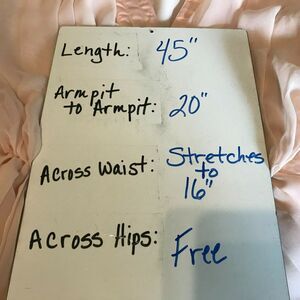 Length: 45"
Armpit
to Armpit: 20"
Across Waist: Stretches
to
16"
Across Hips: Free